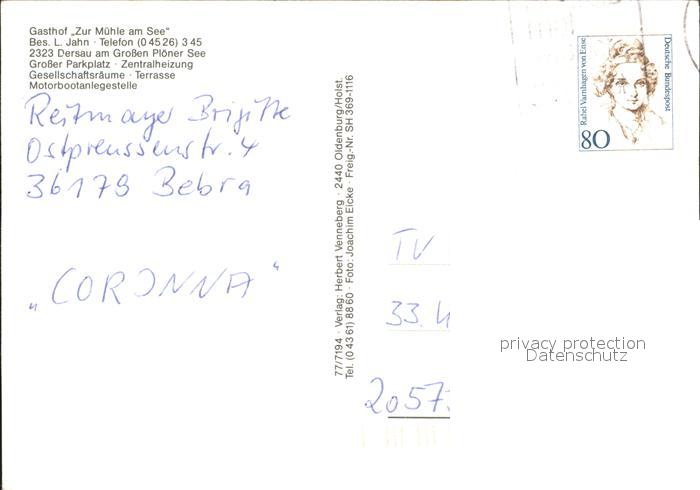 Gasthof „Zur Mühle am See“
Bes. L. Jahn · Telefon (0 45 26) 3 45
2323 Dersau am Großen Plöner See
Großer Parkplatz · Zentralheizung
Gesellschaftsräume · Terrasse
Motorbootanlegestelle
Reitmayer Brigitte
Ostpreussenstr. 4
36179 Bebra
„CORINNA“
77/7194 · Verlag: Herbert Venneberg · 2440 Oldenburg/Holst.
Tel. (0 43 61) 88 60 · Foto: Joachim Eicke · Freig.-Nr. SH 369-1116
Rahel Varnhagen von Ense
Deutsche Bundespost
80
TV
33. 
2057
privacy protection
Datenschutz